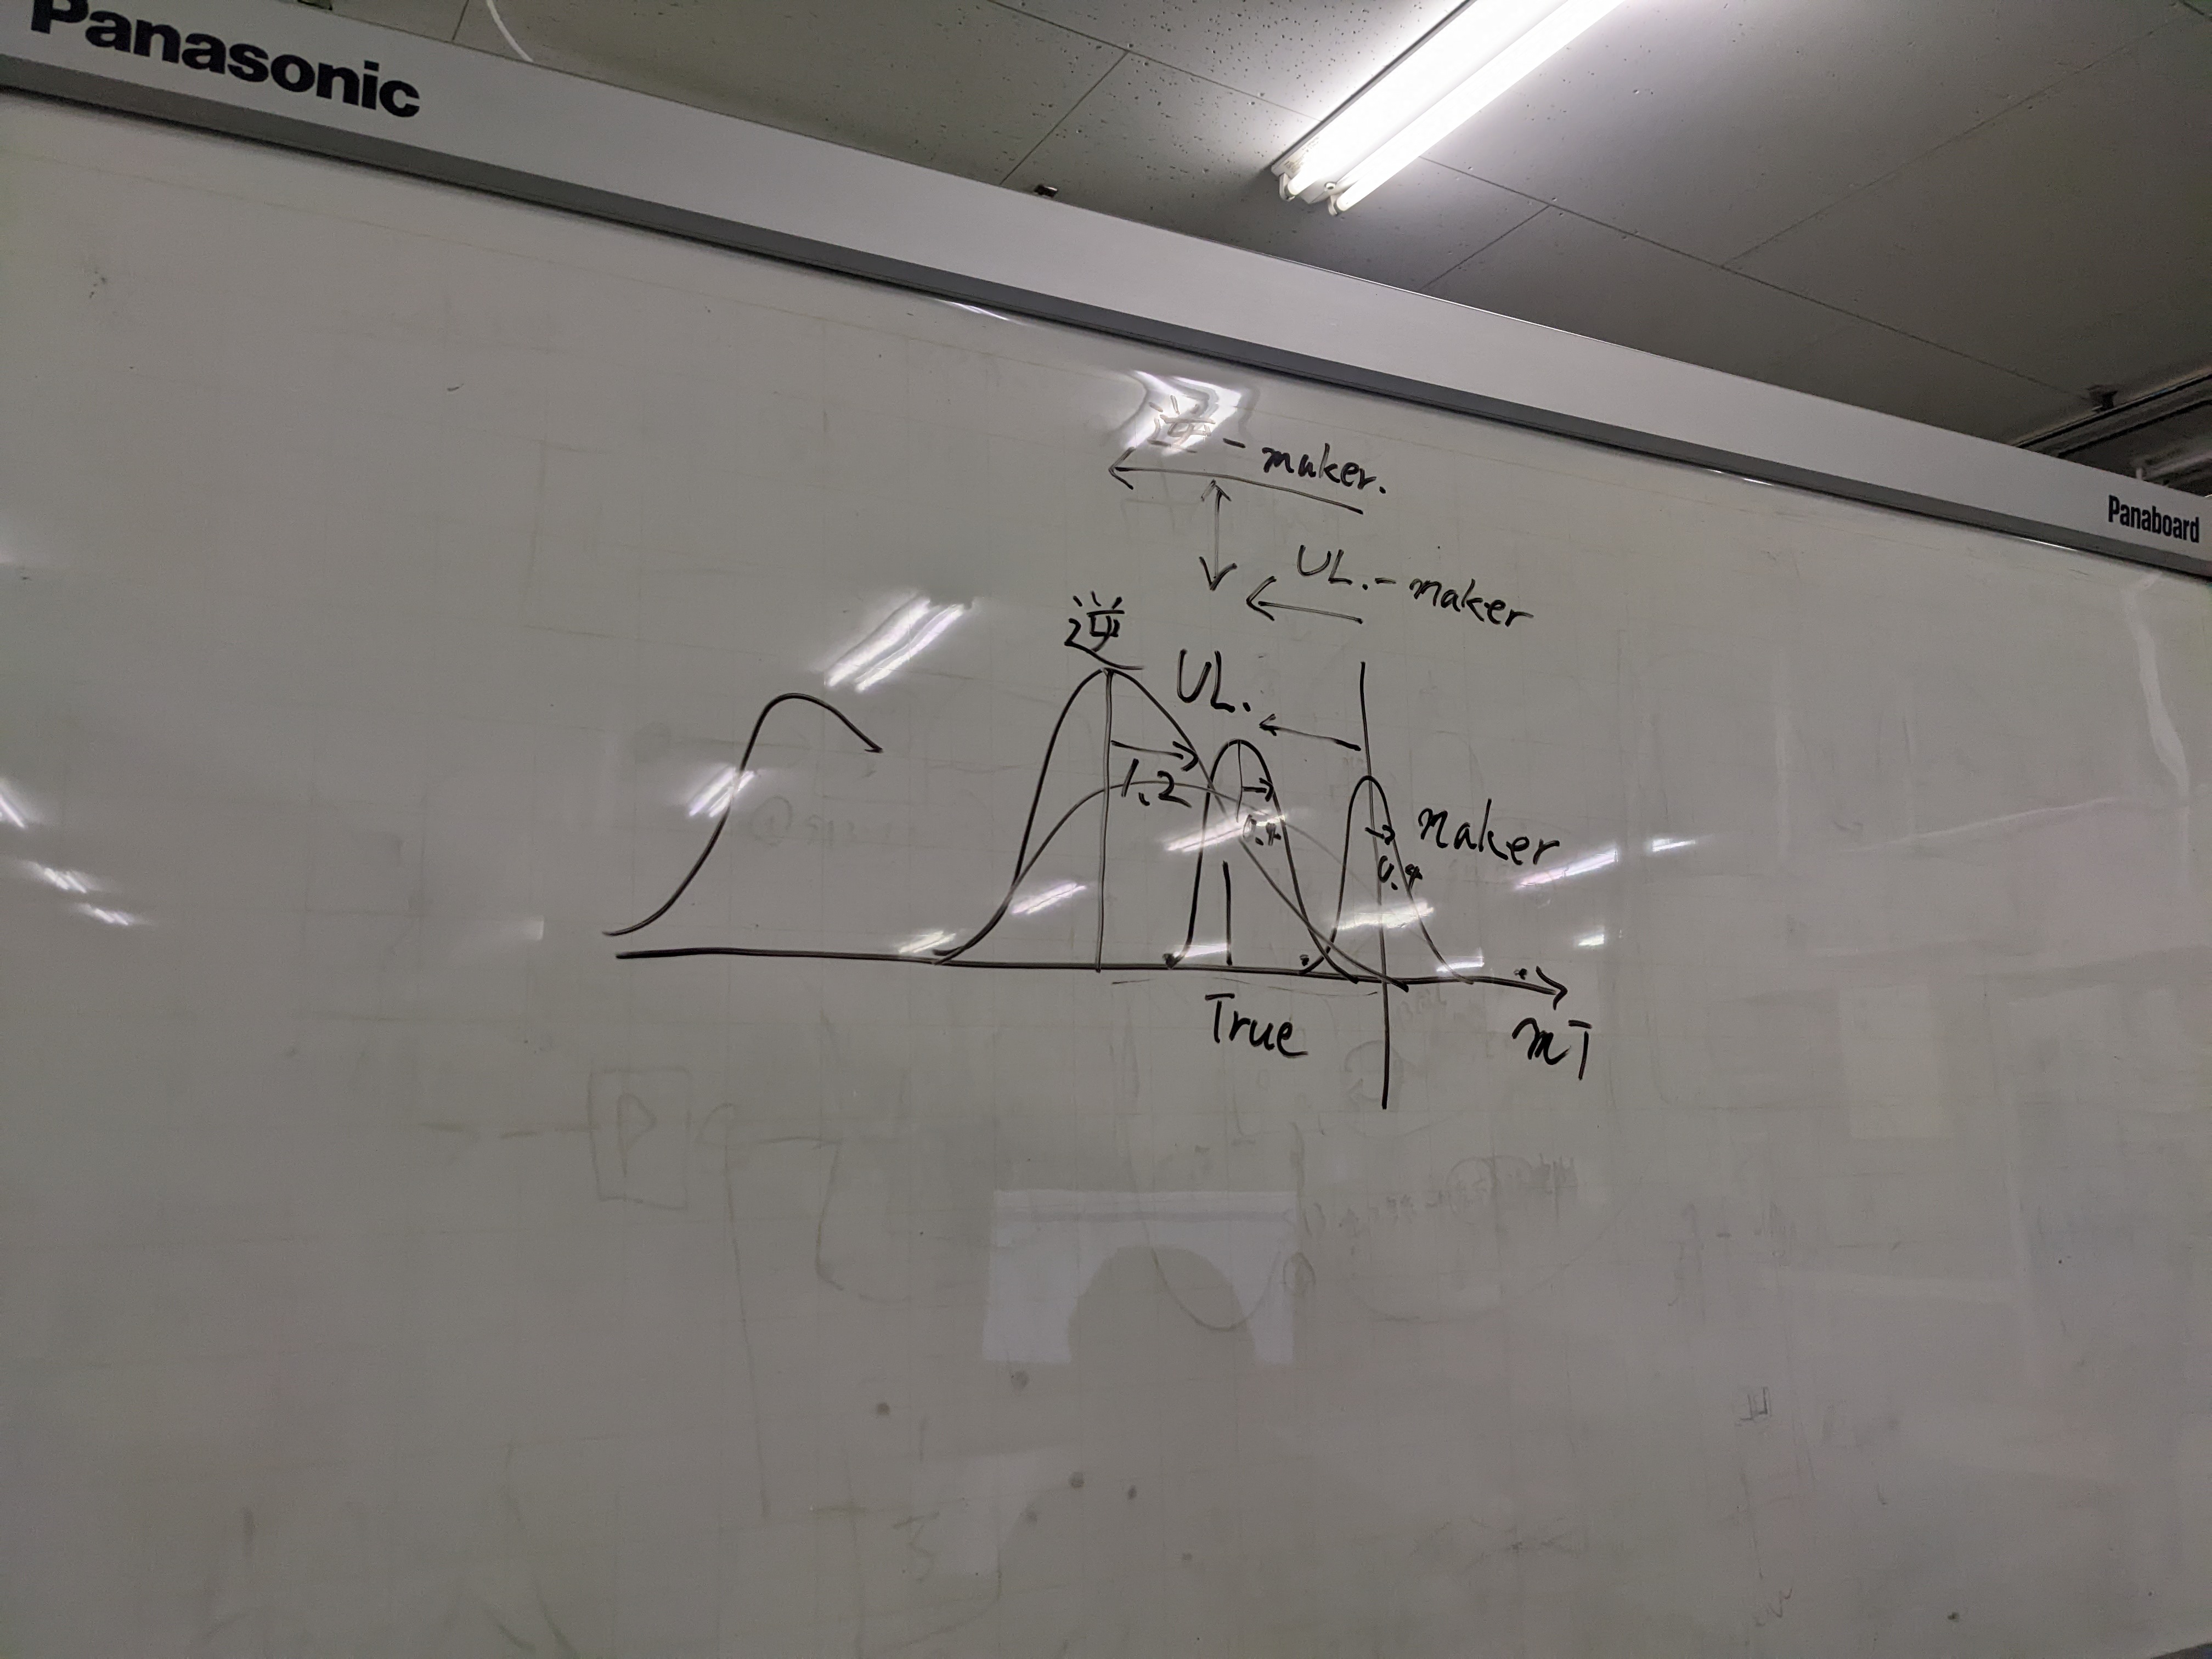 Panasonic
Panaboard
逆 - maker.
UL. - maker
逆
UL.
1.2
0.4
maker
0.4
True
mT